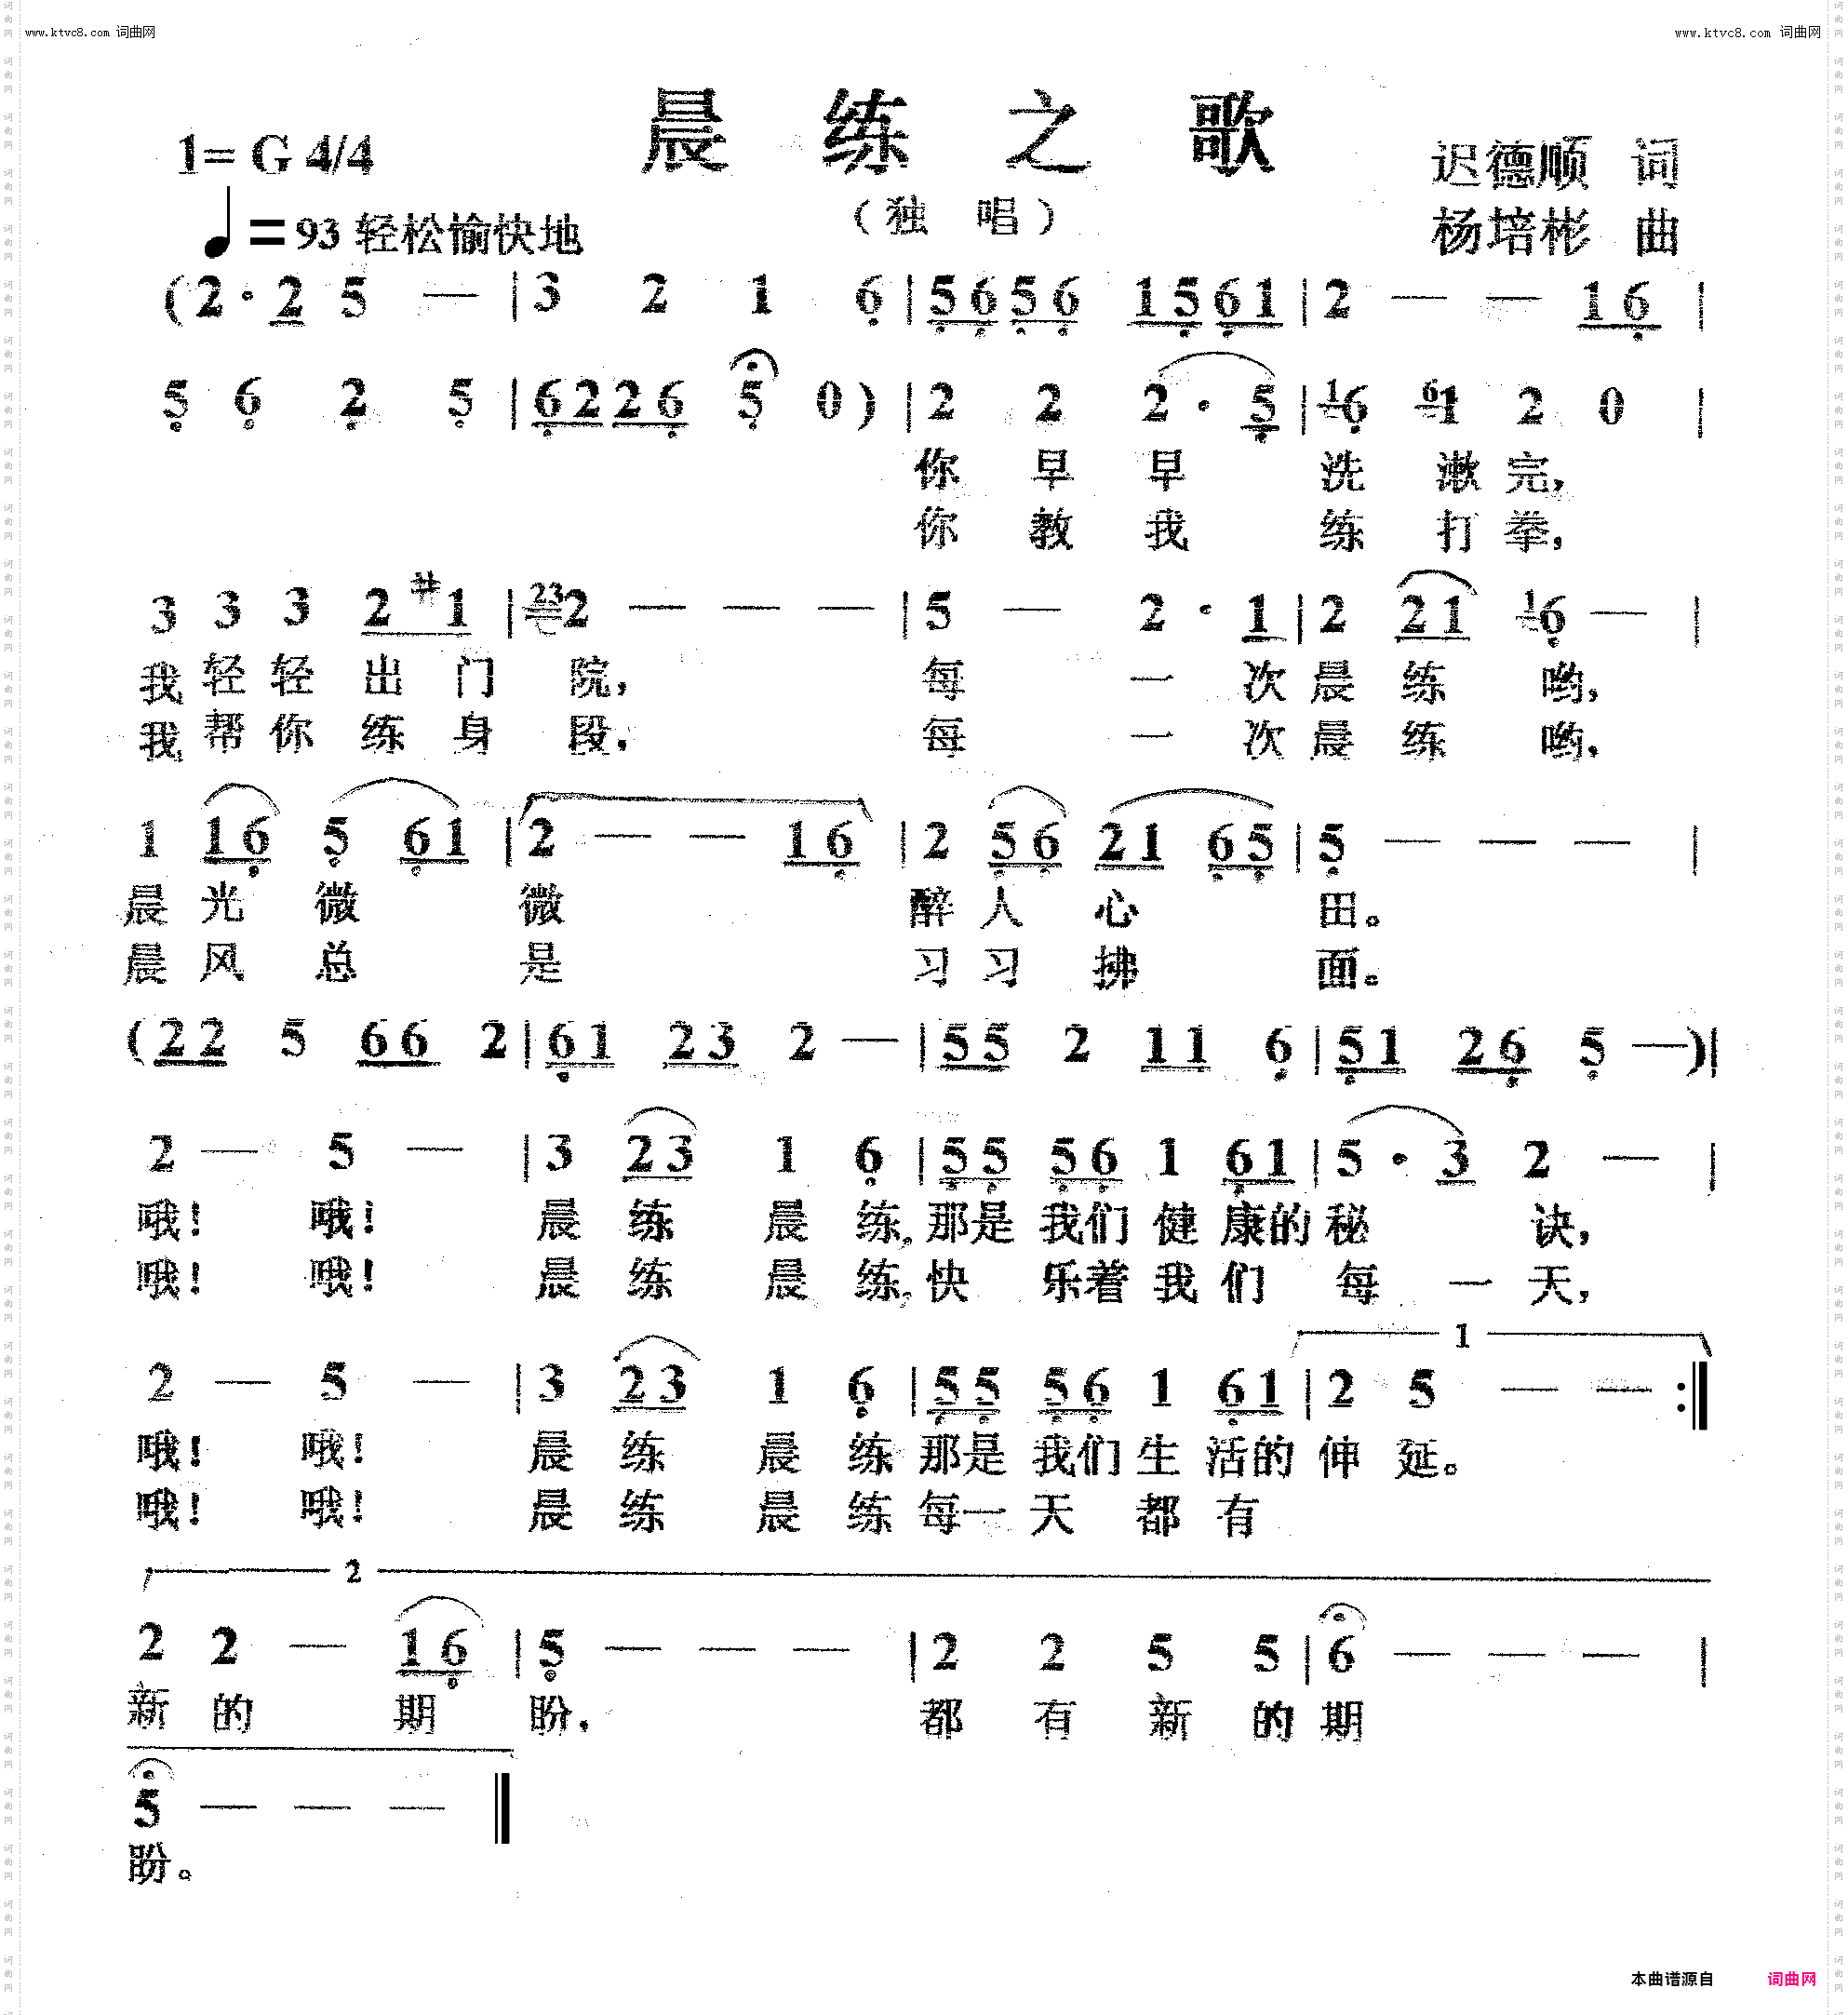 www.ktvc8.com 词曲网
www.ktvc8.com 词曲网
晨 练 之 歌
1= G 4/4
迟德顺 词
（独 唱）
♩= 93 轻松愉快地
杨培彬 曲
(2· 2 5 — | 3 2 1 6 | 5 6 5 6 1 5 6 1 | 2 — — 1 6 |
5 6 2 5 | 6 2 2 6 5 0 ) | 2 2 2 · 5 | 1 6 6 1 2 0 |
你 早 早 洗 漱 完，
你 教 我 练 打 拳，
3 3 3 2 #1 | 23 2 — — — | 5 — 2 · 1 | 2 2 1 1 6 — |
我 轻 轻 出 门 院， 每 一 次 晨 练 哟，
我 帮 你 练 身 段， 每 一 次 晨 练 哟，
1 1 6 5 6 1 | 2 — — 1 6 | 2 5 6 2 1 6 5 | 5 — — — |
晨 光 微 微 醉 人 心 田。
晨 风 总 是 习 习 拂 面。
( 2 2 5 6 6 2 | 6 1 2 3 2 — | 5 5 2 1 1 6 | 5 1 2 6 5 — )|
2 — 5 — | 3 2 3 1 6 | 5 5 5 6 1 6 1 | 5 · 3 2 — |
哦！ 哦！ 晨 练 晨 练，那是 我们 健 康的 秘 诀，
哦！ 哦！ 晨 练 晨 练，快 乐着 我 们 每 一 天，
1
2 — 5 — | 3 2 3 1 6 | 5 5 5 6 1 6 1 | 2 5 — — :‖
哦！ 哦！ 晨 练 晨 练 那是 我们 生 活的 伸 延。
哦！ 哦！ 晨 练 晨 练 每一 天 都 有
2
2 2 — 1 6 | 5 — — — | 2 2 5 5 | 6 — — — |
新 的 期 盼， 都 有 新 的 期
5 — — — ‖
盼。
本曲谱源自 词曲网